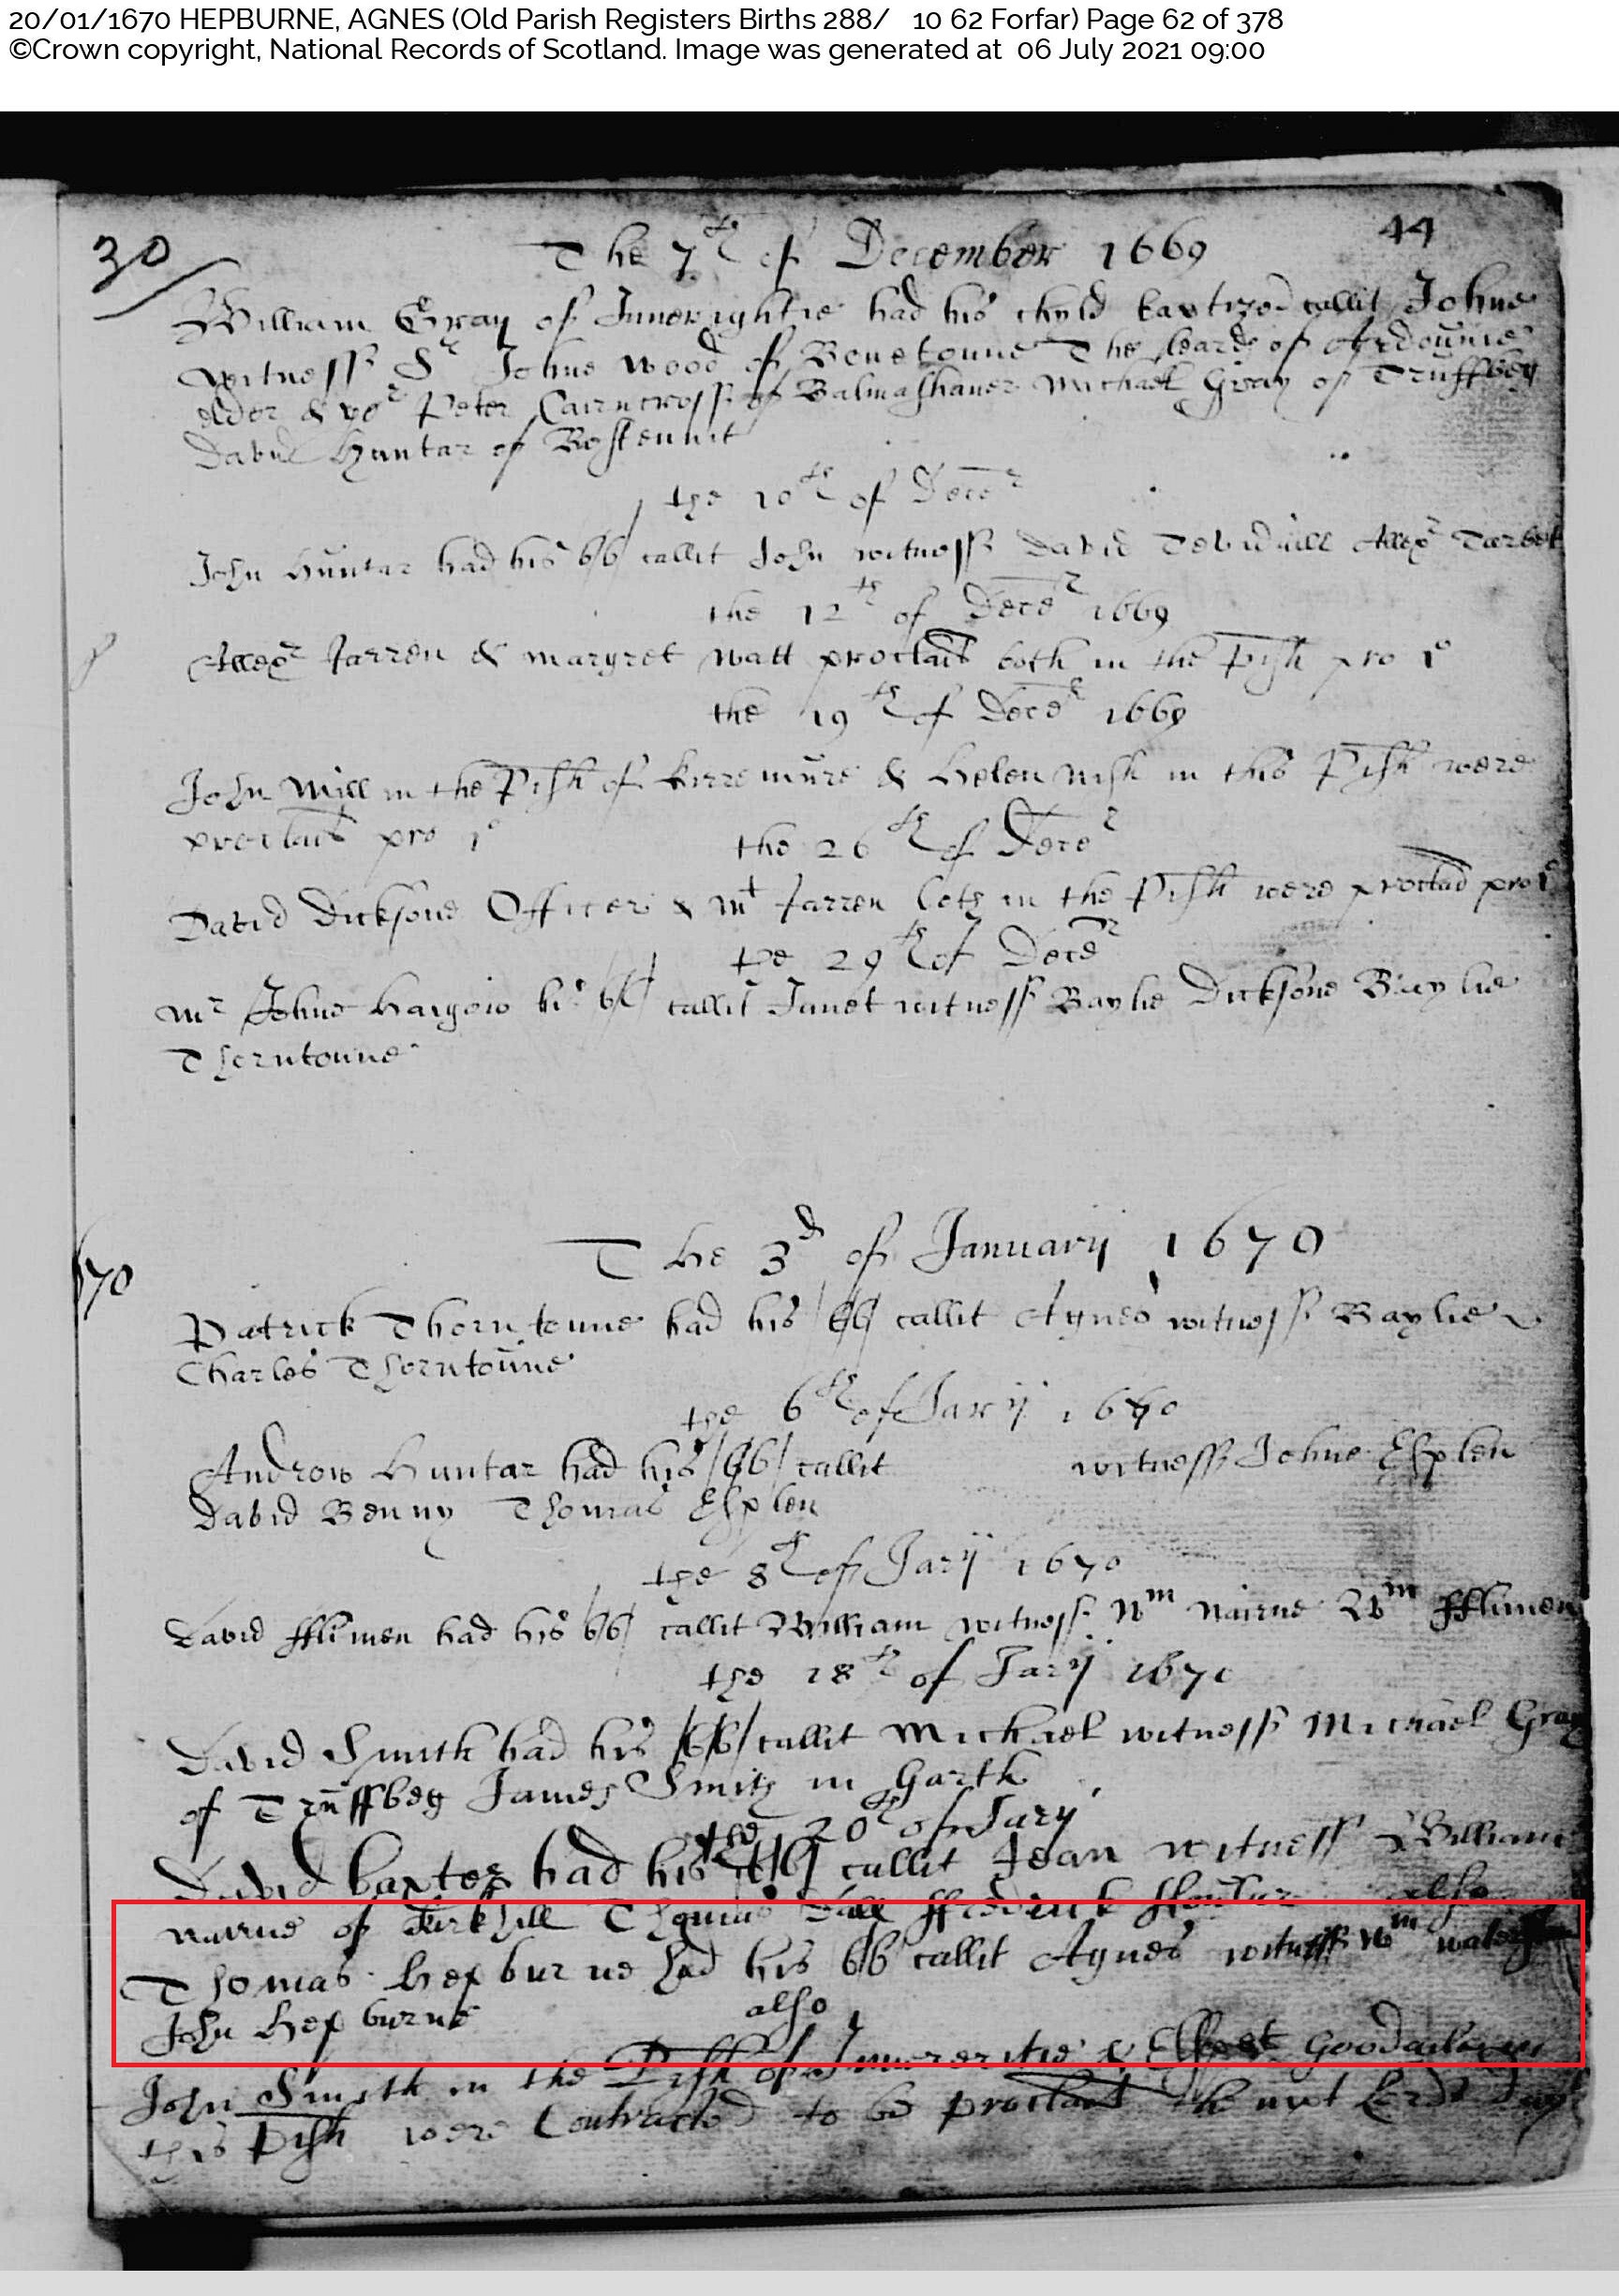 20/01/1670 HEPBURNE, AGNES (Old Parish Registers Births 288/ 10 62 Forfar) Page 62 of 378
©Crown copyright, National Records of Scotland. Image was generated at 06 July 2021 09:00
44
30
The 7th of December 1669
William Gray of Innerightie had his chyld baptized callit Johne
witness Sr Johne Wood of Bonetoune The leards of
elder & yor Peter Cairncross of Balmashaner Michael Gray of Truffbeg
David Huntar of
the 10th of Decer
John Huntar had his bb callit John witness David Allexr Tarbet
the 12th of Decer 1669
Allexr Jarren & margret watt proclaid both in the Pish pro 1o
the 19th of Decer 1669
John Mill in the Pish of kirremure & Helen Nish in this Pish were
proclaid pro 1o
the 26th of Decer
David Dicksone Officer & Mt Jarren both in the Pish were proclad pro 1o
the 29th of Decer
Mr Johne his bb callit Janet witness Baylie Dicksone Baylie
Thorntoune
The 3d of January 1670
670
Patrick Thorntoune had his bb callit Agnes witness Baylie
Charles Thorntoune
the 6th of Jary 1670
Andrew Huntar had his bb callit witness Johne Esplen
David Benny Thomas Esplen
the 8th of Jary 1670
David fflimen had his bb callit William witness Wm Nairne Wm fflimen
the 18th of Jary 1670
David Smith had his bb callit Michael witness Michael Gray
of Truffbeg James Smith in Garth
the 20th of Jary
David baxter had his bb callit Jean witness William
nairne of kirkhill Thomas also
Thomas hepburne had his bb callit Agnes witness Wm
John hepburne also
John Smith in the Pish of Innereritie & Elspet
this Pish were Contracted to be proclaid the nixt Lords day